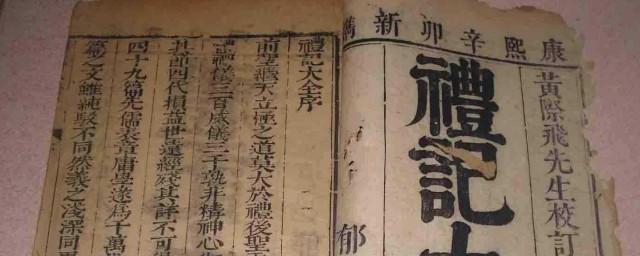 康熙辛卯新鐫
黃際飛先生校訂
禮記
郁
禮記大全序
前聖繼天立極之道莫大於禮後聖
禮儀三百威儀三千孰非精神心
其節四代損益世遠經殘其詳不可
四十九篇先儒表章庸學遂爲千萬
篇之文雖純駁不同然義之淺深同